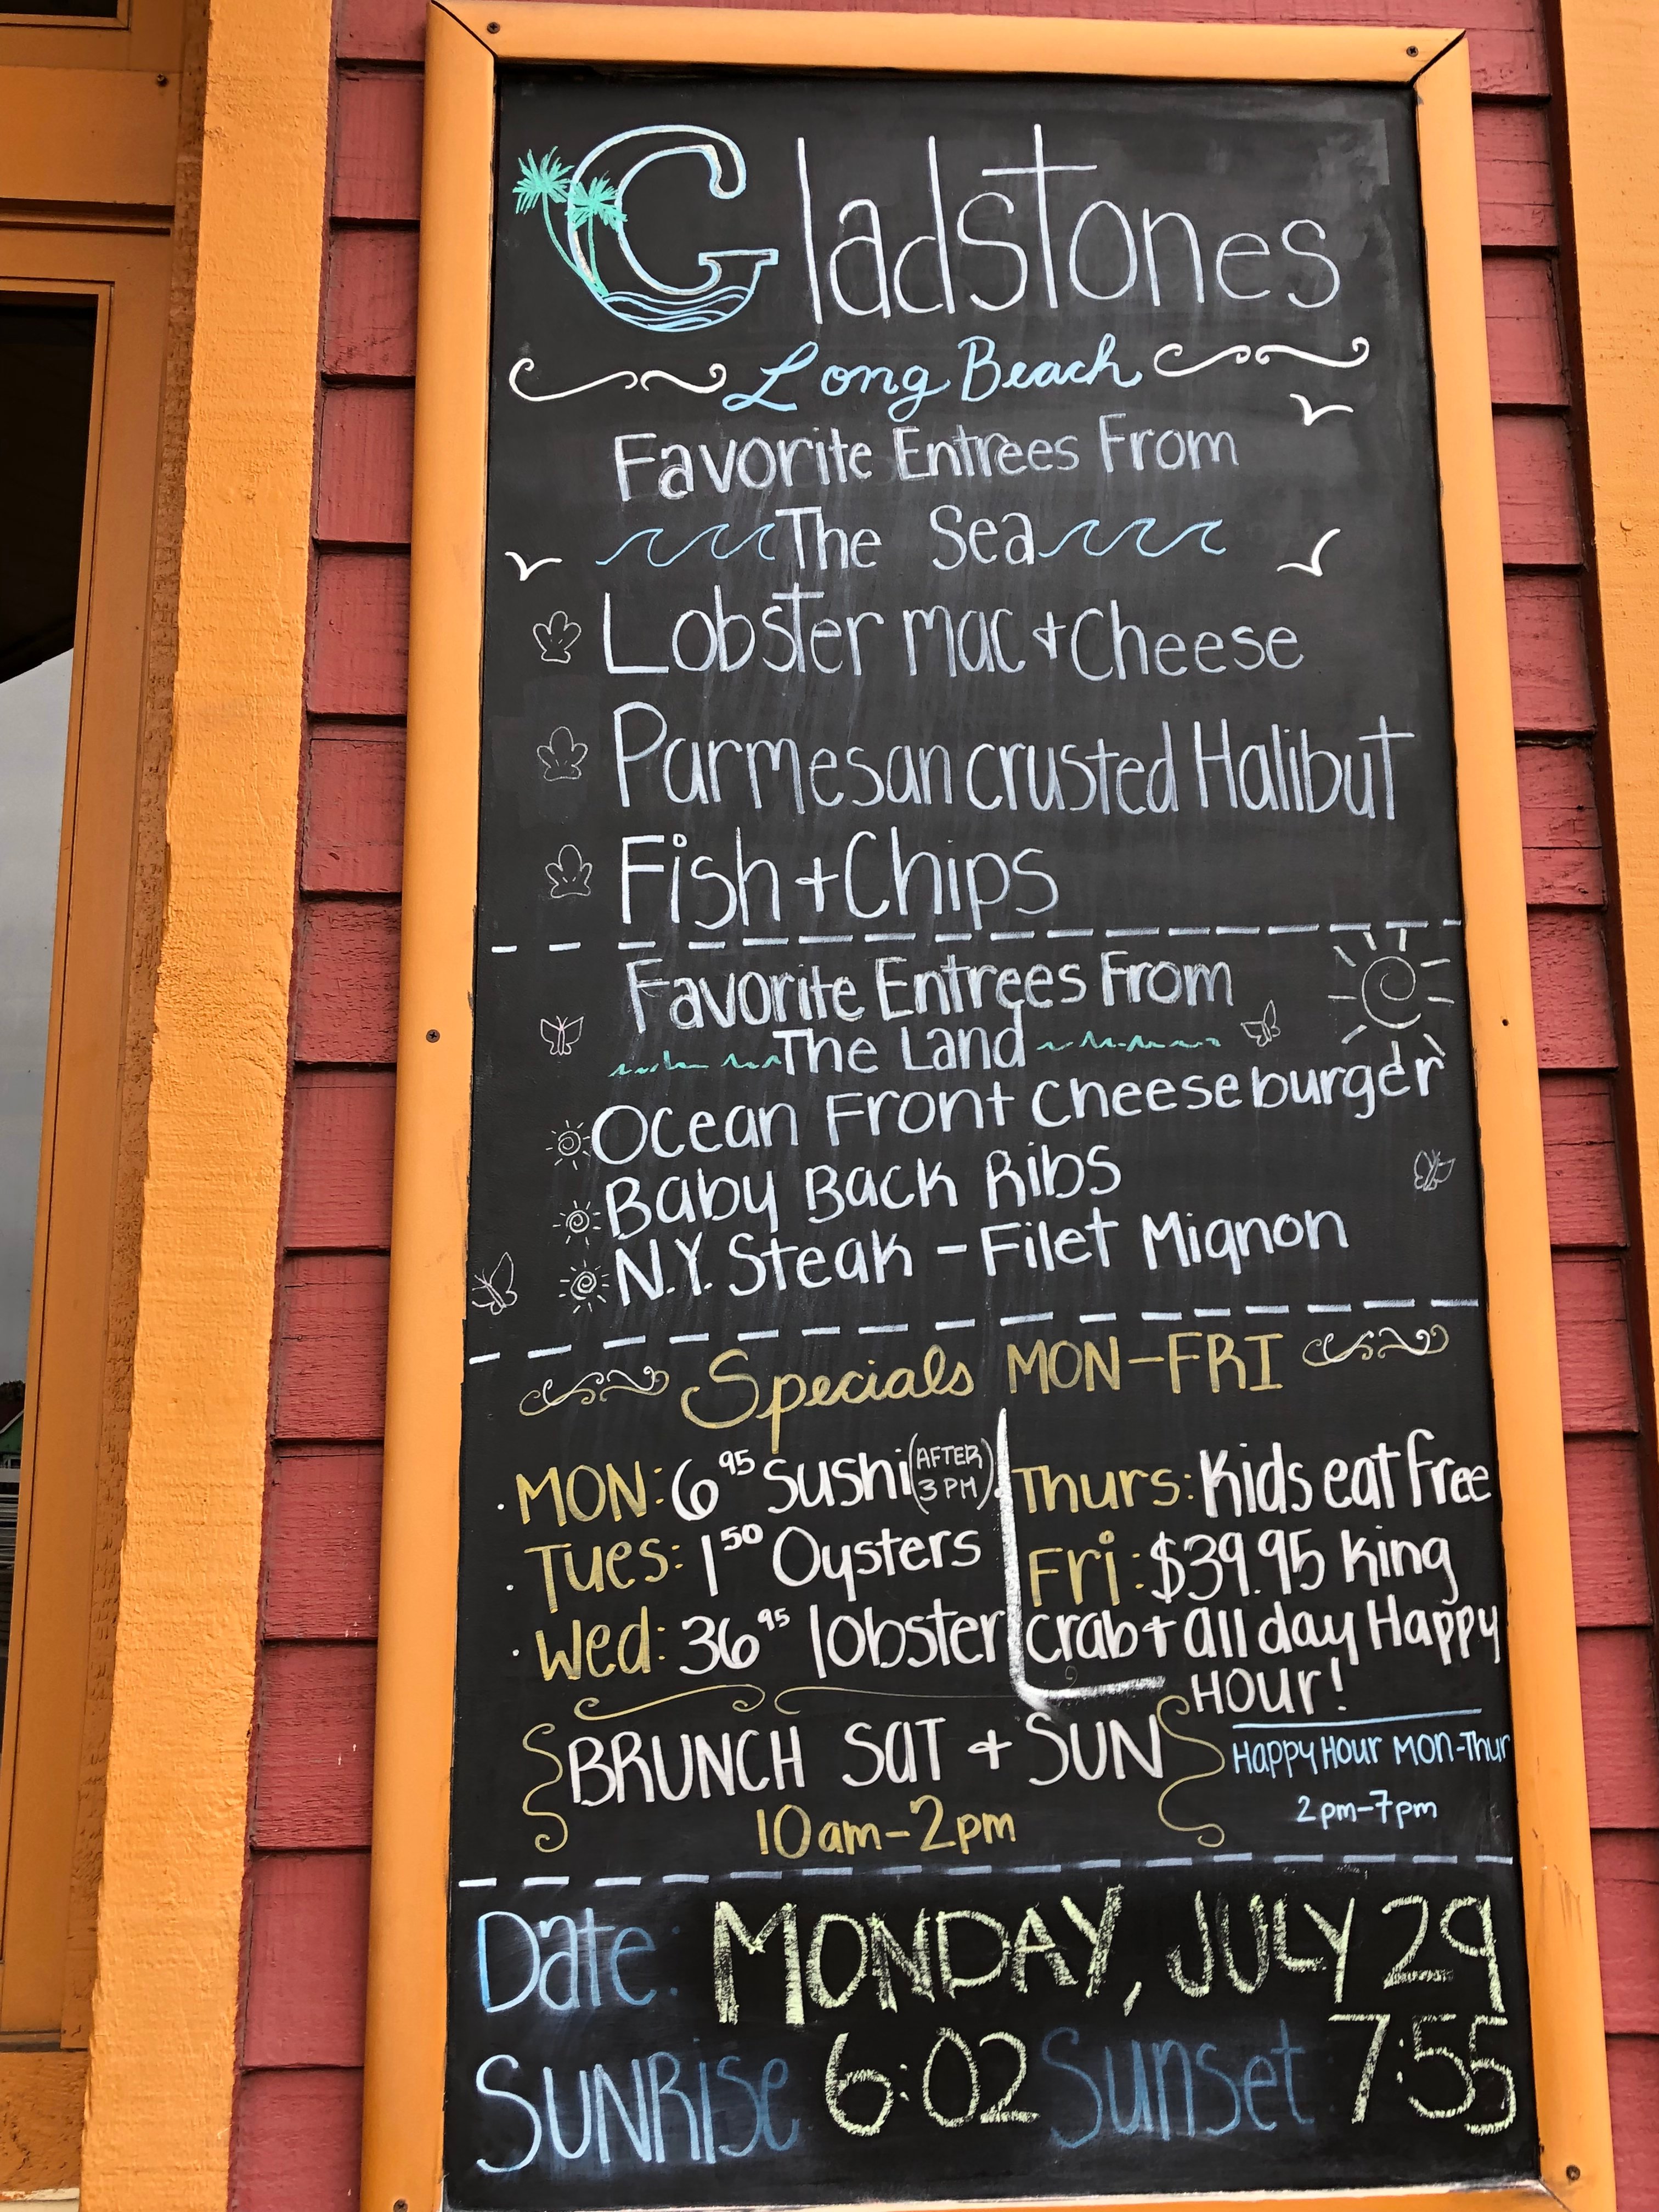 Gladstones
Long Beach
Favorite Entrees From
The Sea
Lobster mac + Cheese
Parmesan crusted Halibut
Fish + Chips
Favorite Entrees From
The Land
Ocean Front Cheeseburger
Baby Back Ribs
N.Y. Steak - Filet Mignon
Specials MON-FRI
MON: 6 95 Sushi (AFTER 3 PM)
Tues: 1 50 Oysters
Wed: 36 95 lobster
Thurs: Kids eat free
Fri: $39.95 King
crab + all day Happy
Hour!
BRUNCH SAT + SUN
10am-2pm
Happy Hour Mon-Thur
2pm-7pm
Date: MONDAY, JULY 29
SUNRise 6:02 Sunset 7:55